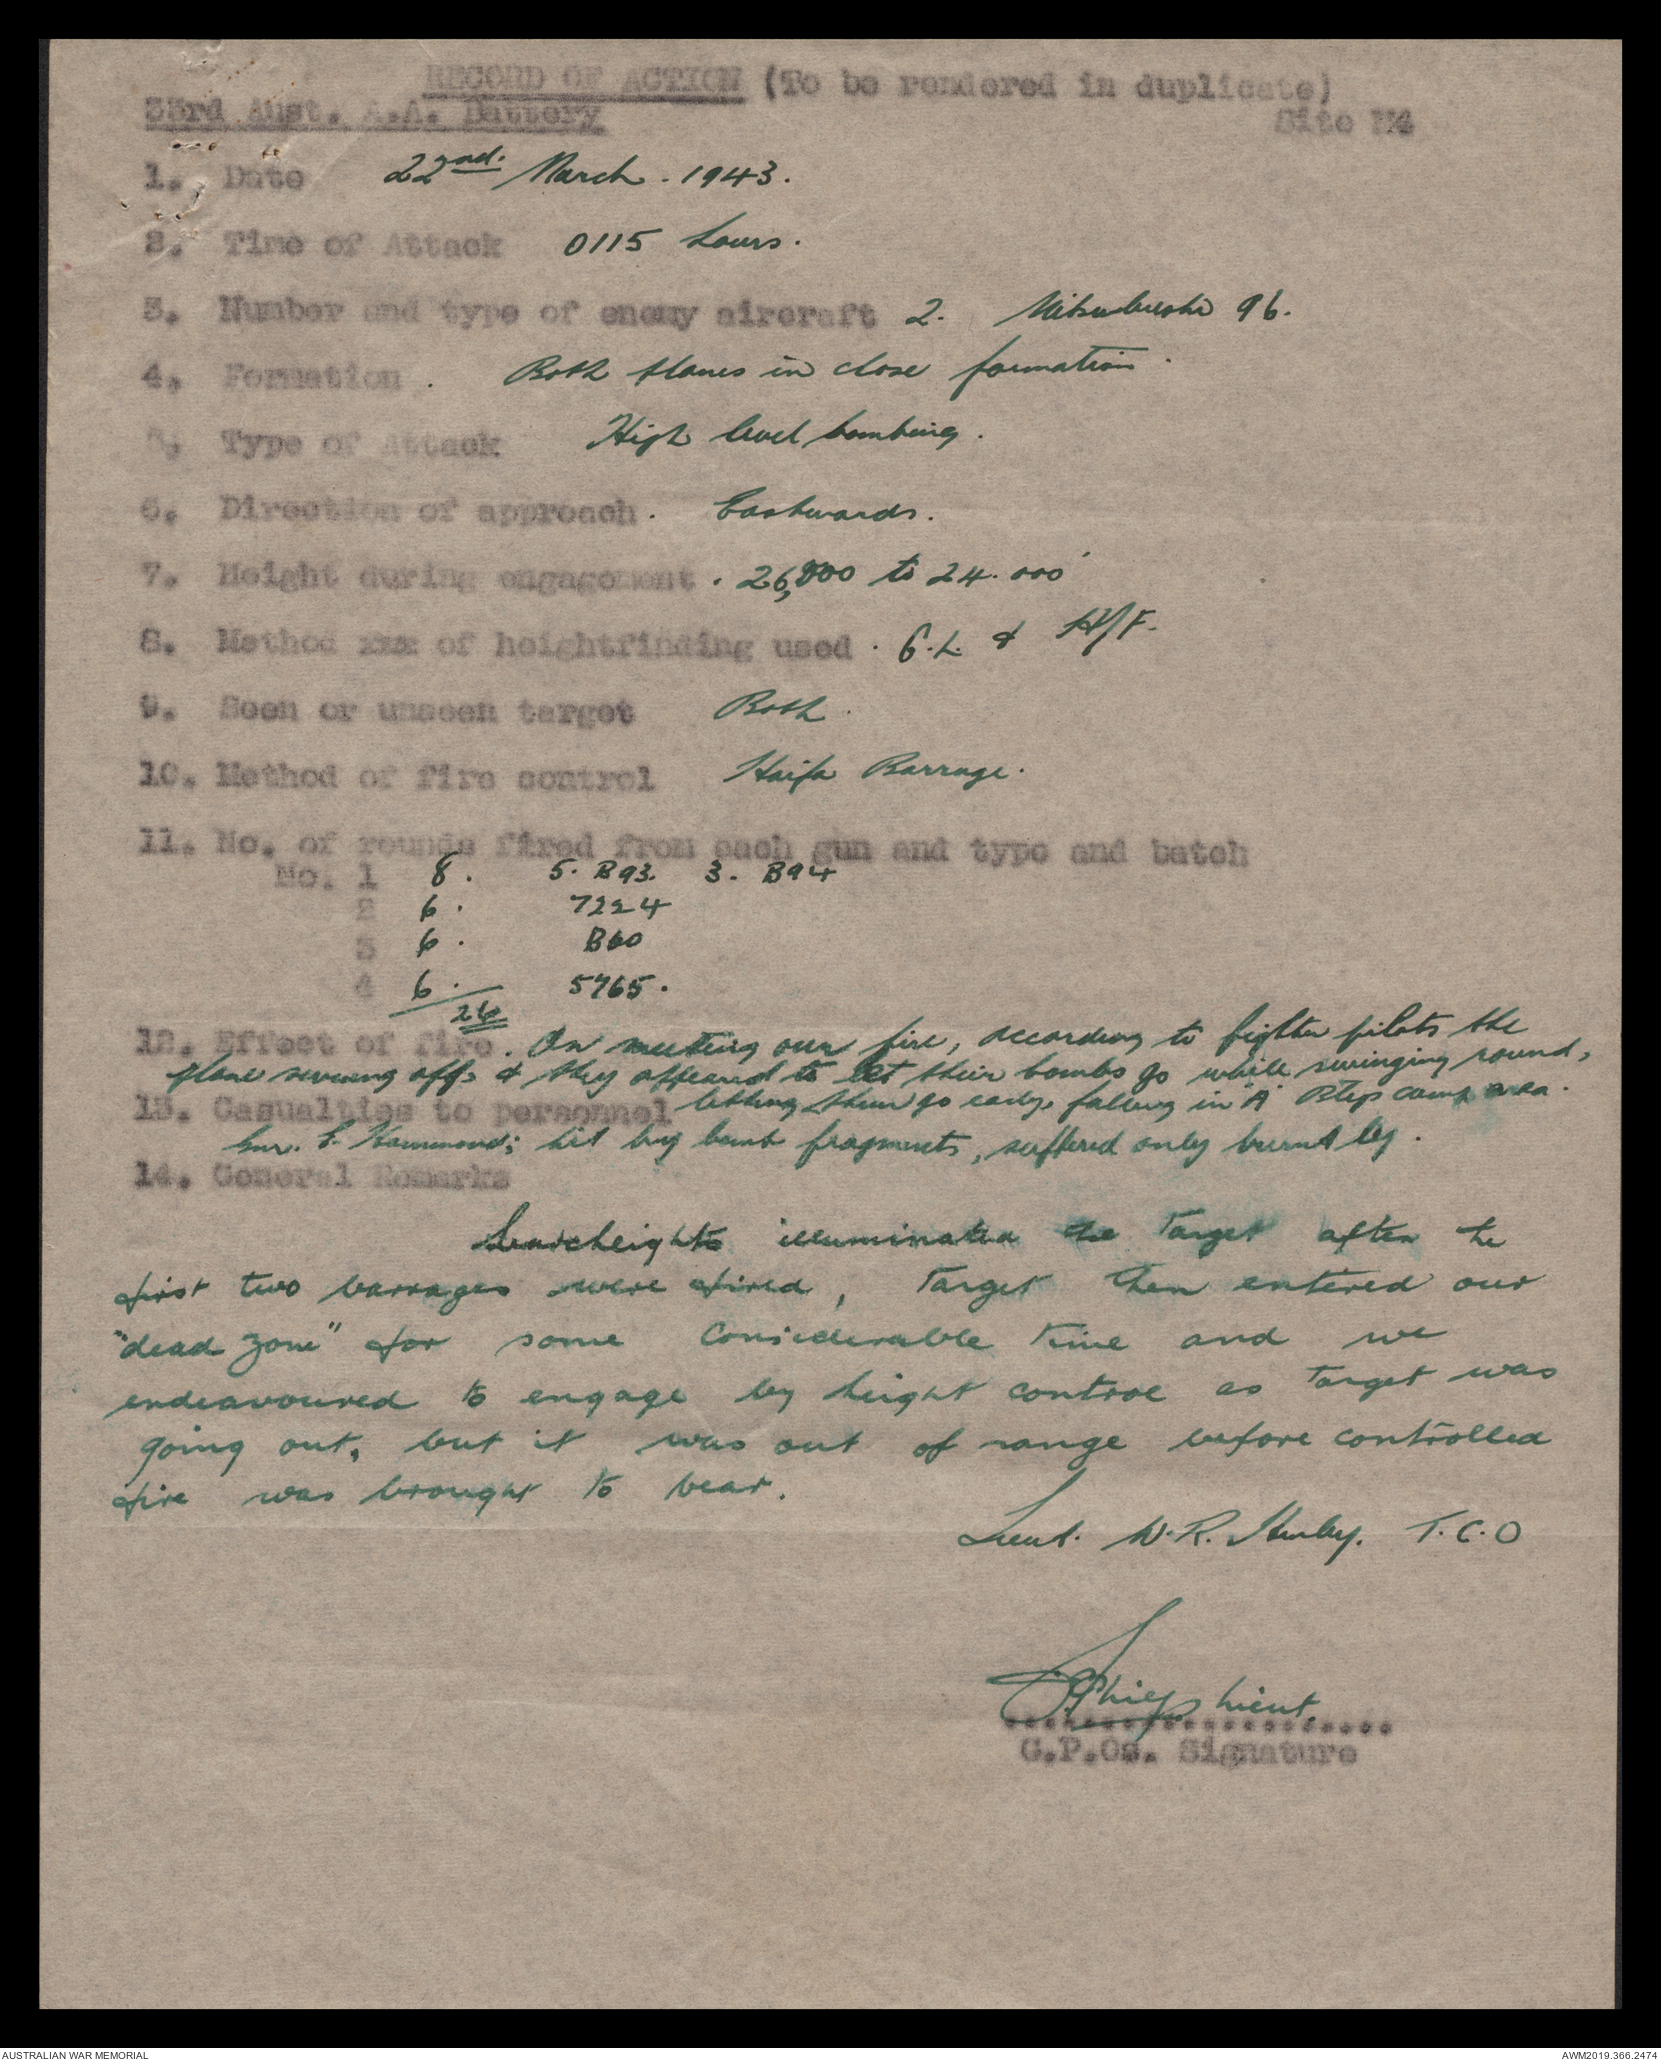 RECORD OF ACTION (To be rendered in duplicate)
33rd Aust. A.A. Battery
Site
1. Date 22nd. March. 1943.
2. Time of Attack 0115 hours.
3. Number and type of enemy aircraft 2. Mitsubushi 96.
4. Formation. Both planes in close formation.
5. Type of Attack High level bombing.
6. Direction of approach. Eastwards.
7. Height during engagement. 26,000 to 24.000'
8. Method xxx of heightfinding used. G.L. & H/F.
9. Seen or unseen target Both.
10. Method of fire control Haifa Barrage.
11. No. of rounds fired from each gun and type and batch
No. 1 8. 5. B93. 3. B94
2 6. 7224
3 6. B60
4 6. 5765.
26
12. Effect of fire. On meeting our fire, according to fighter pilots the
plane off, & they appeared to let their bombs go while swinging round,
13. Casualties to personnel letting them go early, falling in "A" camp area.
Gnr. Hammond; hit by bomb fragments, suffered only burnt leg.
14. General Remarks
Searchlights illuminated the Target after the
first two barrages were fired, Target then entered our
"dead zone" for some considerable time and we
endeavoured to engage by height control as Target was
going out, but it was out of range before controlled
fire was brought to bear.
Lieut. W.R. T.C.O
Lieut.
G.P.Os. Signature
AUSTRALIAN WAR MEMORIAL
AWM2019.366.2474